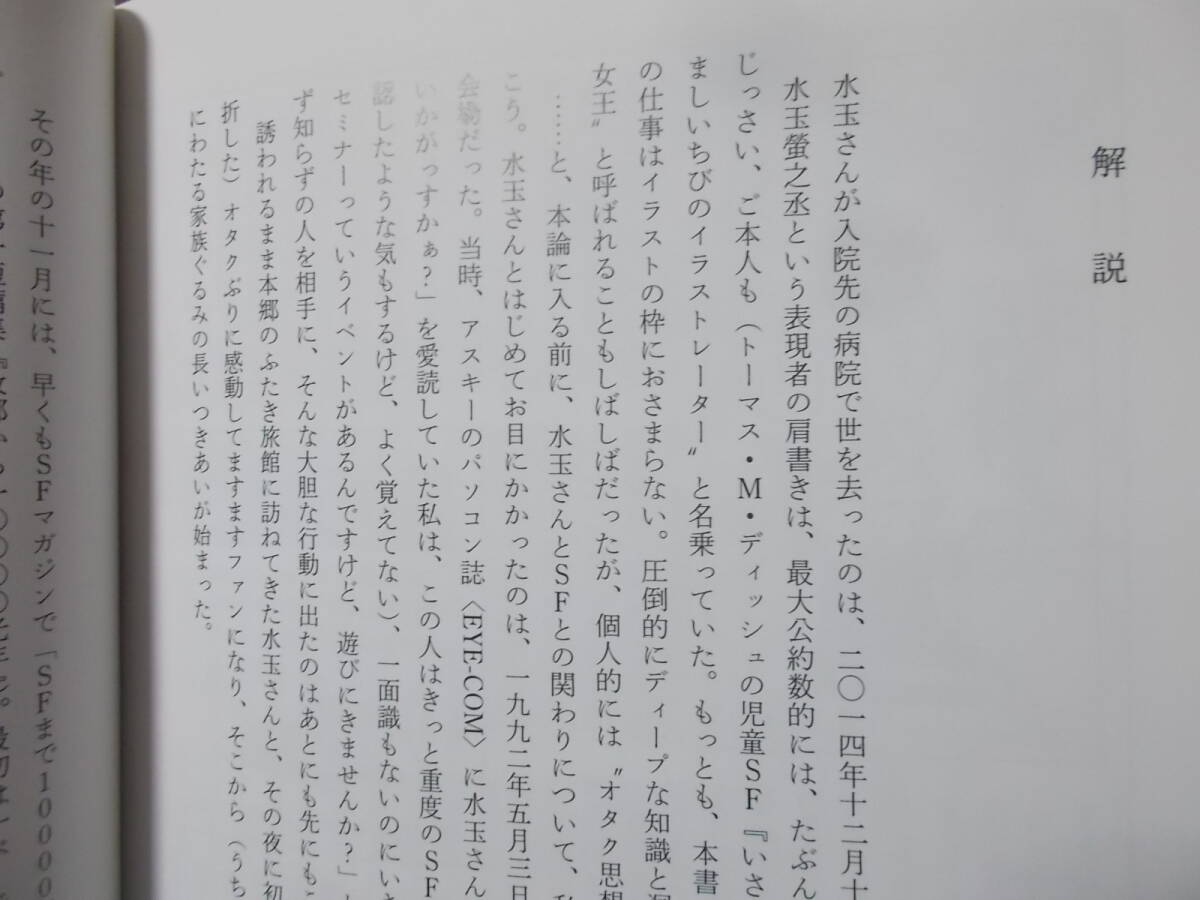 解説
水玉さんが入院先の病院で世を去ったのは、二〇一四年十二月十
水玉螢之丞という表現者の肩書きは、最大公約数的には、たぶん
じっさい、ご本人も(トーマス・M・ディッシュの児童SF『いさ
ましいちびのイラストレーター〟と名乗っていた。もっとも、本書
の仕事はイラストの枠におさまらない。圧倒的にディープな知識と洞
女王〟と呼ばれることもしばしばだったが、個人的には〝オタク思想
……と、本論に入る前に、水玉さんとSFとの関わりについて、私
こう。水玉さんとはじめてお目にかかったのは、一九九二年五月三日
会場だった。当時、アスキーのパソコン誌〈EYE-COM〉に水玉さん
いかがっすかぁ?」を愛読していた私は、この人はきっと重度のSF
認したような気もするけど、よく覚えてない)、一面識もないのにいき
セミナーっていうイベントがあるんですけど、遊びにきませんか?」
ず知らずの人を相手に、そんな大胆な行動に出たのはあとにも先にもこ
誘われるまま本郷のふたき旅館に訪ねてきた水玉さんと、その夜に初
折した)オタクぶりに感動してますますファンになり、そこから(うち
にわたる家族ぐるみの長いつきあいが始まった。
その年の十一月には、早くもSFマガジンで「SFまで10000